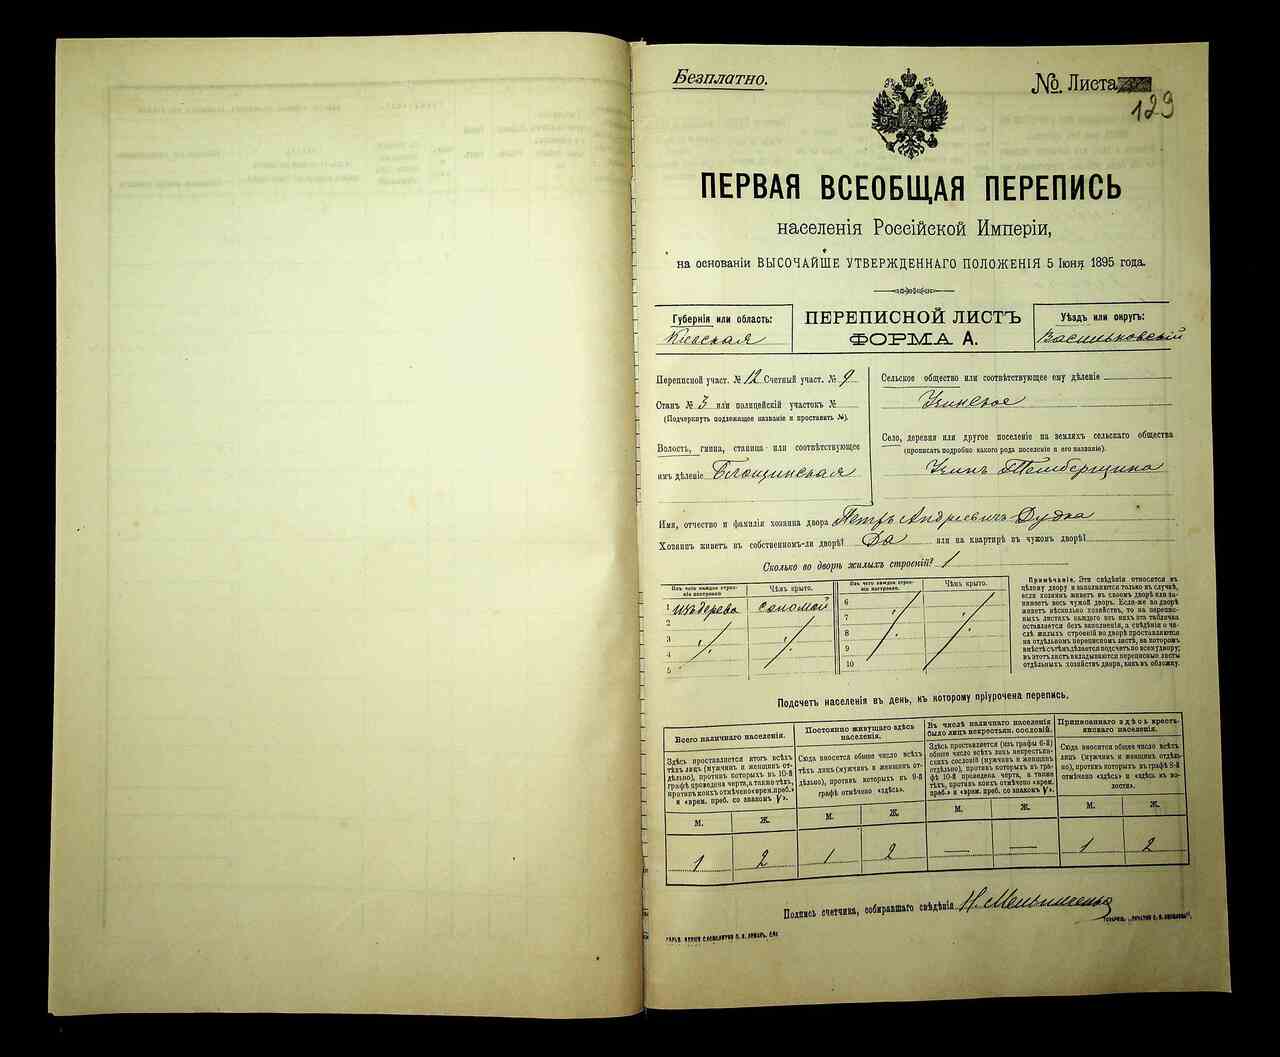 Безплатно.
№ Листа
129
ПЕРВАЯ ВСЕОБЩАЯ ПЕРЕПИСЬ
населенія Россійской Имперіи,
на основаніи ВЫСОЧАЙШЕ УТВЕРЖДЕННАГО ПОЛОЖЕНІЯ 5 Іюня 1895 года.
Губернія или область:
Кіевская
ПЕРЕПИСНОЙ ЛИСТЪ
ФОРМА А.
Уѣздъ или округъ:
Васильковскій
Переписной участ. № 12 Счетный участ. № 9
Станъ № 3 или полицейскій участокъ №
(Подчеркнуть подлежащее названіе и проставить №).
Волость, гмина, станица или соотвѣтствующее
имъ дѣленіе
Сельское общество или соотвѣтствующее ему дѣленіе
Узинское
Село, деревня или другое поселеніе на земляхъ сельскаго общества
(прописать подробно какого рода поселеніе и его названіе).
Узинъ
Имя, отчество и фамилія хозяина двора Петръ Андреевичъ Дудка
Хозяинъ живетъ въ собственномъ-ли дворѣ? Да или на квартирѣ въ чужомъ дворѣ?
Сколько во дворѣ жилыхъ строеній? 1
Изъ чего каждое строеніе построено
Чѣмъ крыто.
Изъ чего каждое строеніе построено.
Чѣмъ крыто.
1 изъ дерева соломой
2
3
4
5
6
7
8
9
10
Примѣчаніе. Эти свѣдѣнія относятся къ
цѣлому двору и заполняются только въ случаѣ,
если хозяинъ живетъ въ своемъ дворѣ или занимаетъ
весь чужой дворъ. Если-же во дворѣ
живетъ нѣсколько хозяйствъ, то на переписныхъ
листахъ каждаго изъ нихъ эта табличка
оставляется безъ заполненія, а свѣдѣнія о числѣ
жилыхъ строеній во дворѣ проставляются
на отдѣльномъ переписномъ листѣ, на которомъ
вмѣстѣ съ тѣмъ дѣлается подсчетъ по всему двору;
въ этотъ листъ вкладываются переписные листы
отдѣльныхъ хозяйствъ двора, какъ въ обложку.
Подсчетъ населенія въ день, къ которому пріурочена перепись.
Всего наличнаго населенія.
Здѣсь проставляется итогъ всѣхъ
тѣхъ лицъ (мужчинъ и женщинъ отдѣльно),
противъ которыхъ въ 10-й
графѣ проведена черта, а также тѣхъ,
противъ коихъ отмѣчено «врем. преб.»
и «врем. преб. со знакомъ V».
Постоянно живущаго здѣсь
населенія.
Сюда вносится общее число всѣхъ
тѣхъ лицъ (мужчинъ и женщинъ отдѣльно),
противъ которыхъ въ 9-й
графѣ отмѣчено «здѣсь».
Въ числѣ наличнаго населенія
было лицъ некрестьян. сословій.
Здѣсь проставляется (изъ графы 6-й)
общее число всѣхъ лицъ некрестьянскихъ
сословій (мужчинъ и женщинъ
отдѣльно), противъ которыхъ въ графѣ
10-й проведена черта, а также
тѣхъ, противъ коихъ отмѣчено «врем.
преб.» и «врем. преб. со знакомъ V».
Приписаннаго здѣсь крестьянскаго
населенія.
Сюда вносится общее число всѣхъ
лицъ (мужчинъ и женщинъ отдѣльно),
противъ которыхъ въ графѣ 8-й
отмѣчено «здѣсь» и «здѣсь въ волости».
М. Ж. М. Ж. М. Ж. М. Ж.
1 2 1 2 — — 1 2
Подпись счетчика, собиравшаго свѣдѣнія